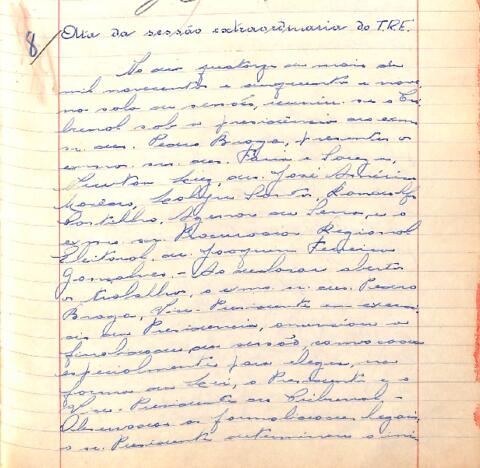 8/ Ata da sessão extraordinaria do T.R.E.
No dia quatorze de maio de
mil novecentos e cinquenta e nove
na sala de sessão, reuniu-se o Tri-
bunal sob a presidência do exmo
sr. des. Pedro Braga, presentes o
exmo. srs. des. Faria e Souza,
Newton Luiz, des. José Américo
Macêdo, Santos,
Portilho, Agenor de Sena, e o
exmo. sr. Procurador Regional
Eleitoral, dr. Joaquim Ferreira
Gonçalves. - Ao declarar aberto
o trabalho, o exmo. sr. des. Pedro
Braga, Vice-Presidente em exercí-
cio da Presidencia, anunciou a
finalidade da sessão, convocada
especialmente para eleger, na
forma da Lei, o Presidente e o
Vice-Presidente do Tribunal -
Observadas as formalidades legais,
o sr. Presidente determinou a